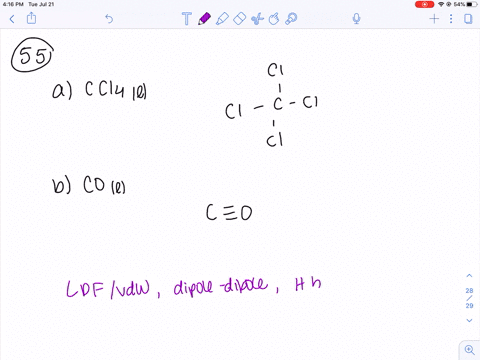 4:16 PM Tue Jul 21
54%
55
a) CCl4 (l)
Cl
Cl - C - Cl
Cl
b) CO (l)
C≡O
LDF/vdW, dipole-dipole, H h
28
/
29